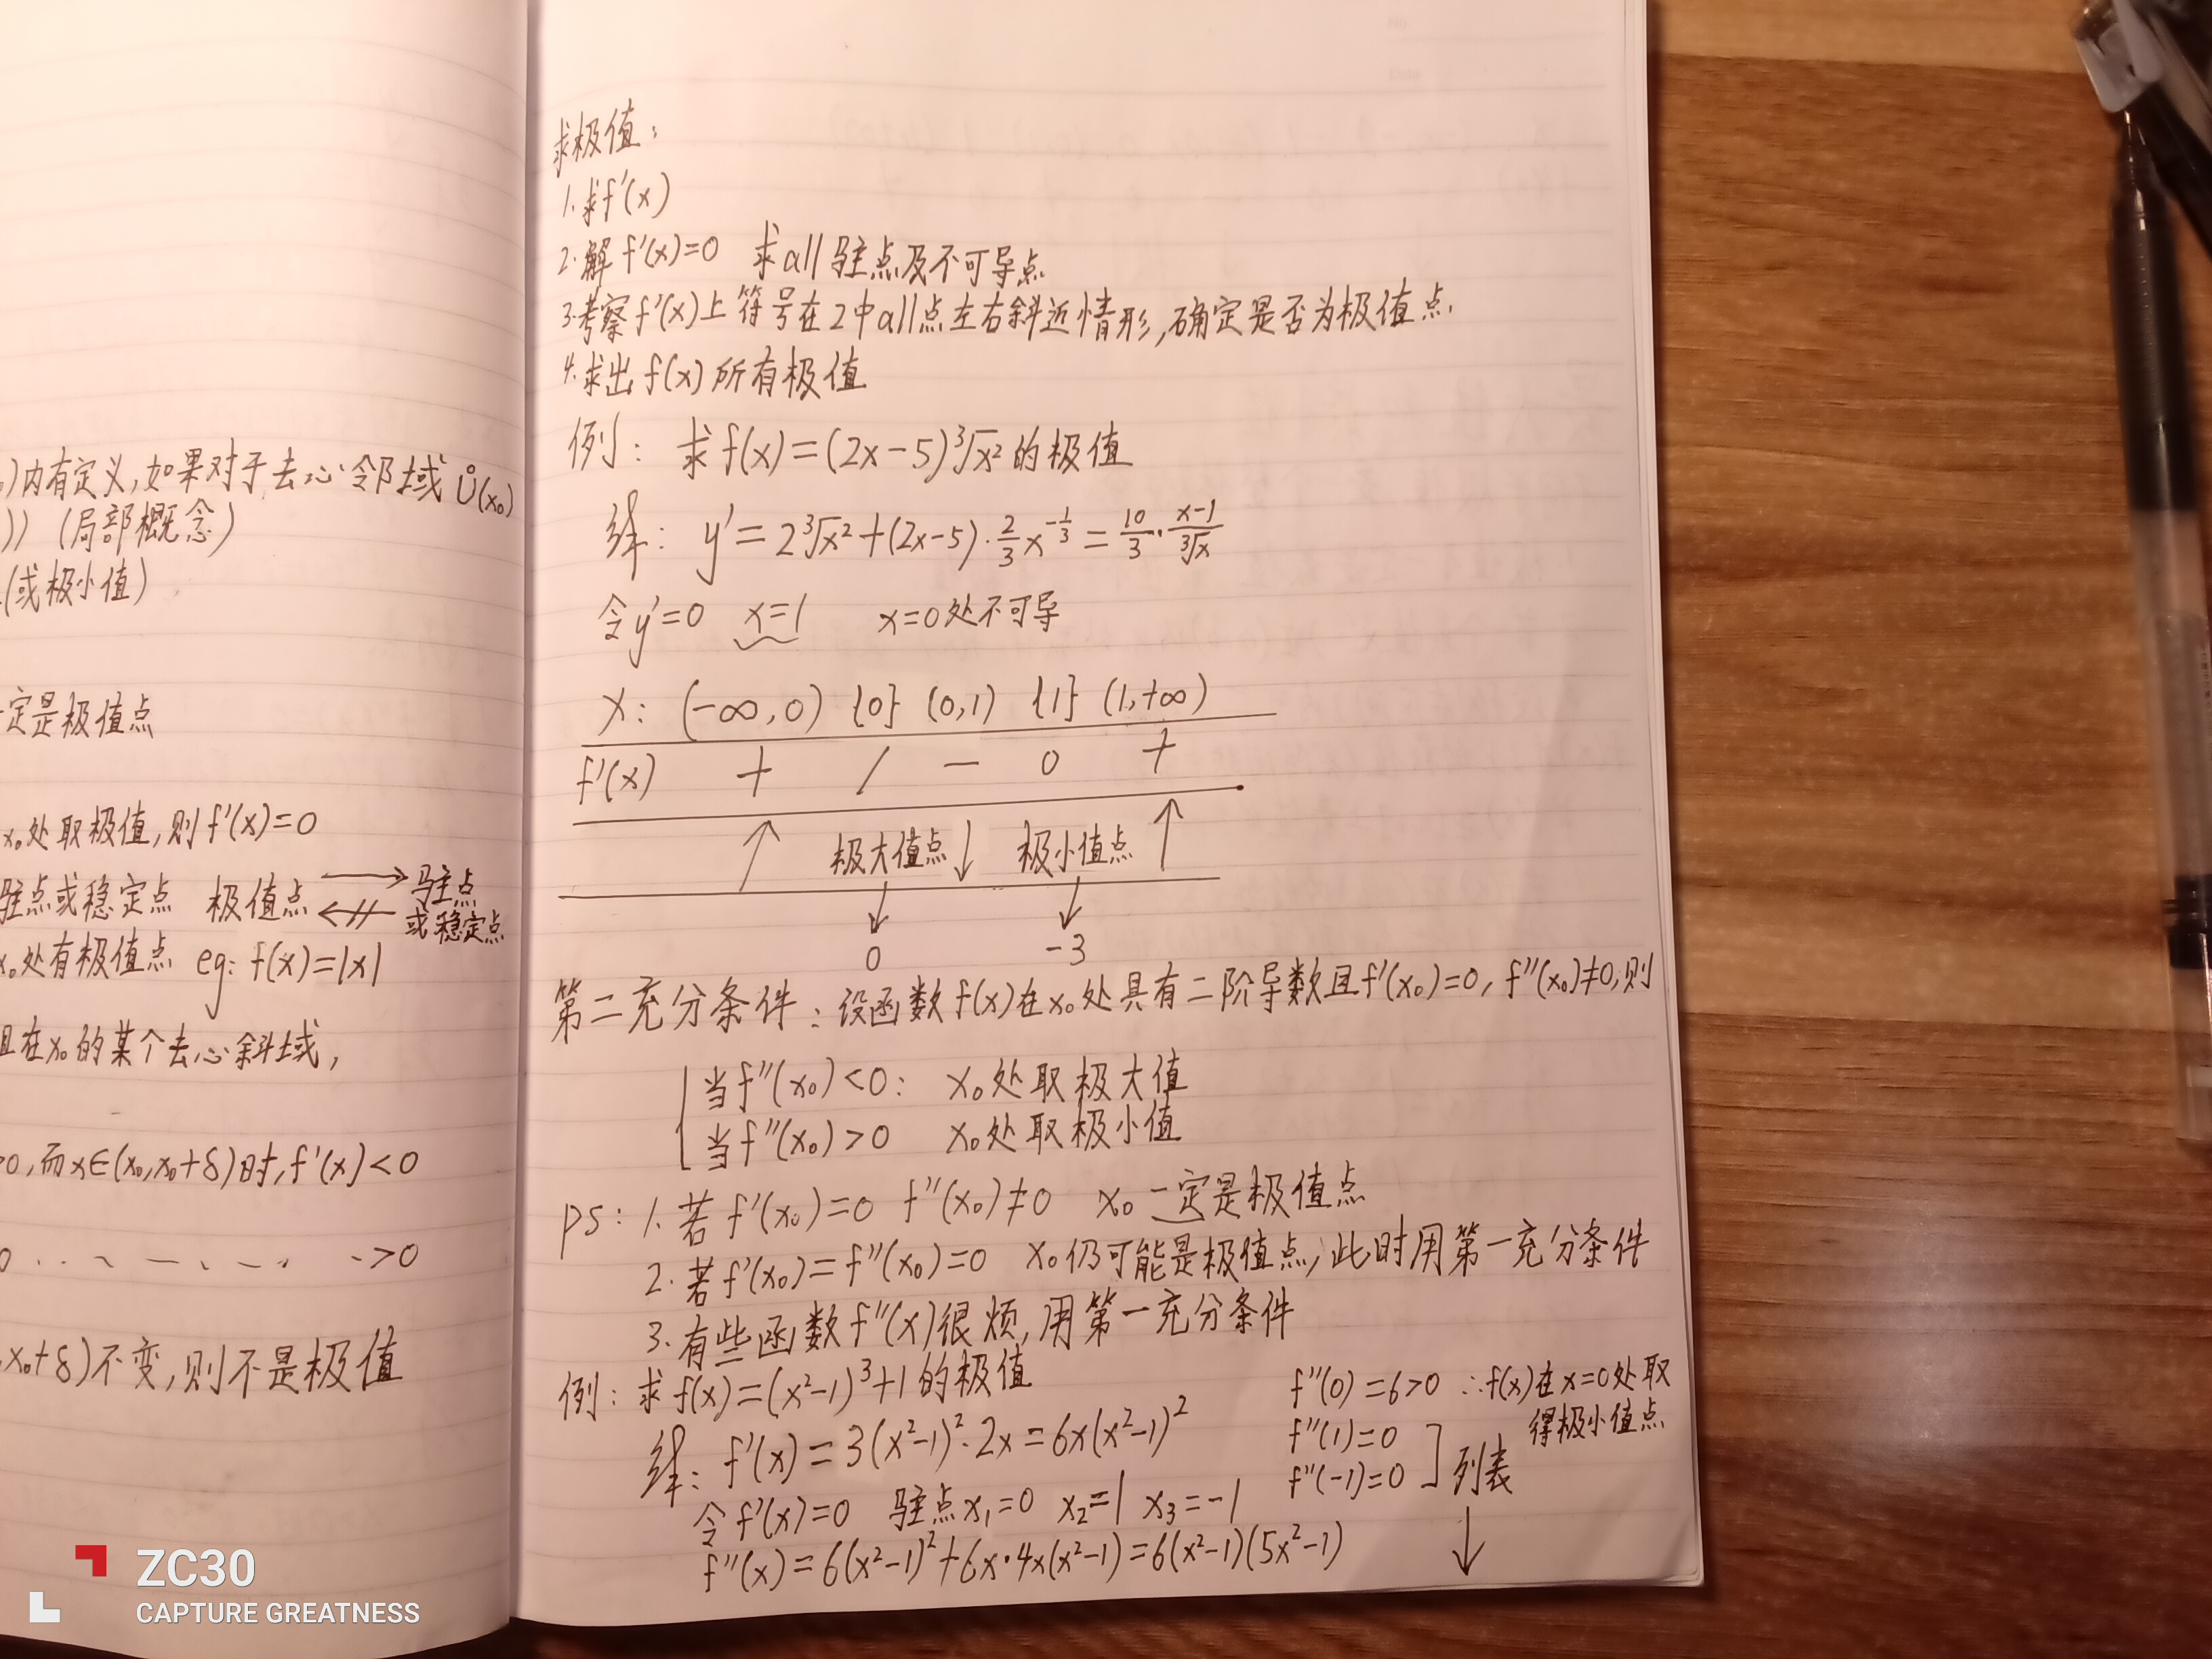 )内有定义,如果对于去心邻域Ů(x₀)
)) (局部概念)
(或极小值)
定是极值点
x₀处取极值,则f'(x)=0
驻点或稳定点 极值点 → 驻点
或稳定点
x₀处有极值点 eg: f(x)=|x|
且在x₀的某个去心斜域,
>0,而x∈(x₀,x₀+δ)时,f'(x)<0
0 ->0
x₀+δ)不变,则不是极值
求极值:
1.求f'(x)
2.解f'(x)=0 求all驻点及不可导点
3.考察f'(x)上符号在2中all点左右斜近情形,确定是否为极值点.
4.求出f(x)所有极值
例: 求f(x)=(2x-5)∛x²的极值
y'=2∛x²+(2x-5)·2/3x^(-1/3)=10/3·(x-1)/∛x
令y'=0 x=1 x=0处不可导
x: (-∞,0) {0} (0,1) {1} (1,+∞)
f'(x) + / - 0 +
↑ 极大值点 ↓ 极小值点 ↑
↓ ↓
0 -3
第二充分条件: 设函数f(x)在x₀处具有二阶导数且f'(x₀)=0, f''(x₀)≠0,则
当f''(x₀)<0: x₀处取极大值
当f''(x₀)>0 x₀处取极小值
ps: 1.若f'(x₀)=0 f''(x₀)≠0 x₀一定是极值点
2.若f'(x₀)=f''(x₀)=0 x₀仍可能是极值点,此时用第一充分条件
3.有些函数f''(x)很烦,用第一充分条件
例: 求f(x)=(x²-1)³+1的极值
f'(x)=3(x²-1)²·2x=6x(x²-1)²
令f'(x)=0 驻点x₁=0 x₂=1 x₃=-1
f''(x)=6(x²-1)²+6x·4x(x²-1)=6(x²-1)(5x²-1)
f''(0)=6>0 ∴f(x)在x=0处取
得极小值点
f''(1)=0
f''(-1)=0 ] 列表
↓
ZC30
CAPTURE GREATNESS